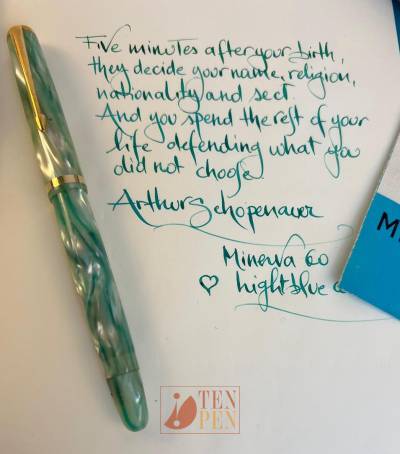 Five minutes after your birth,
they decide your name, religion,
nationality and sect
And you spend the rest of your
life defending what you
did not choose
Arthur Schopenauer
Minerva 60
♡ hightblue
M
TEN
PEN